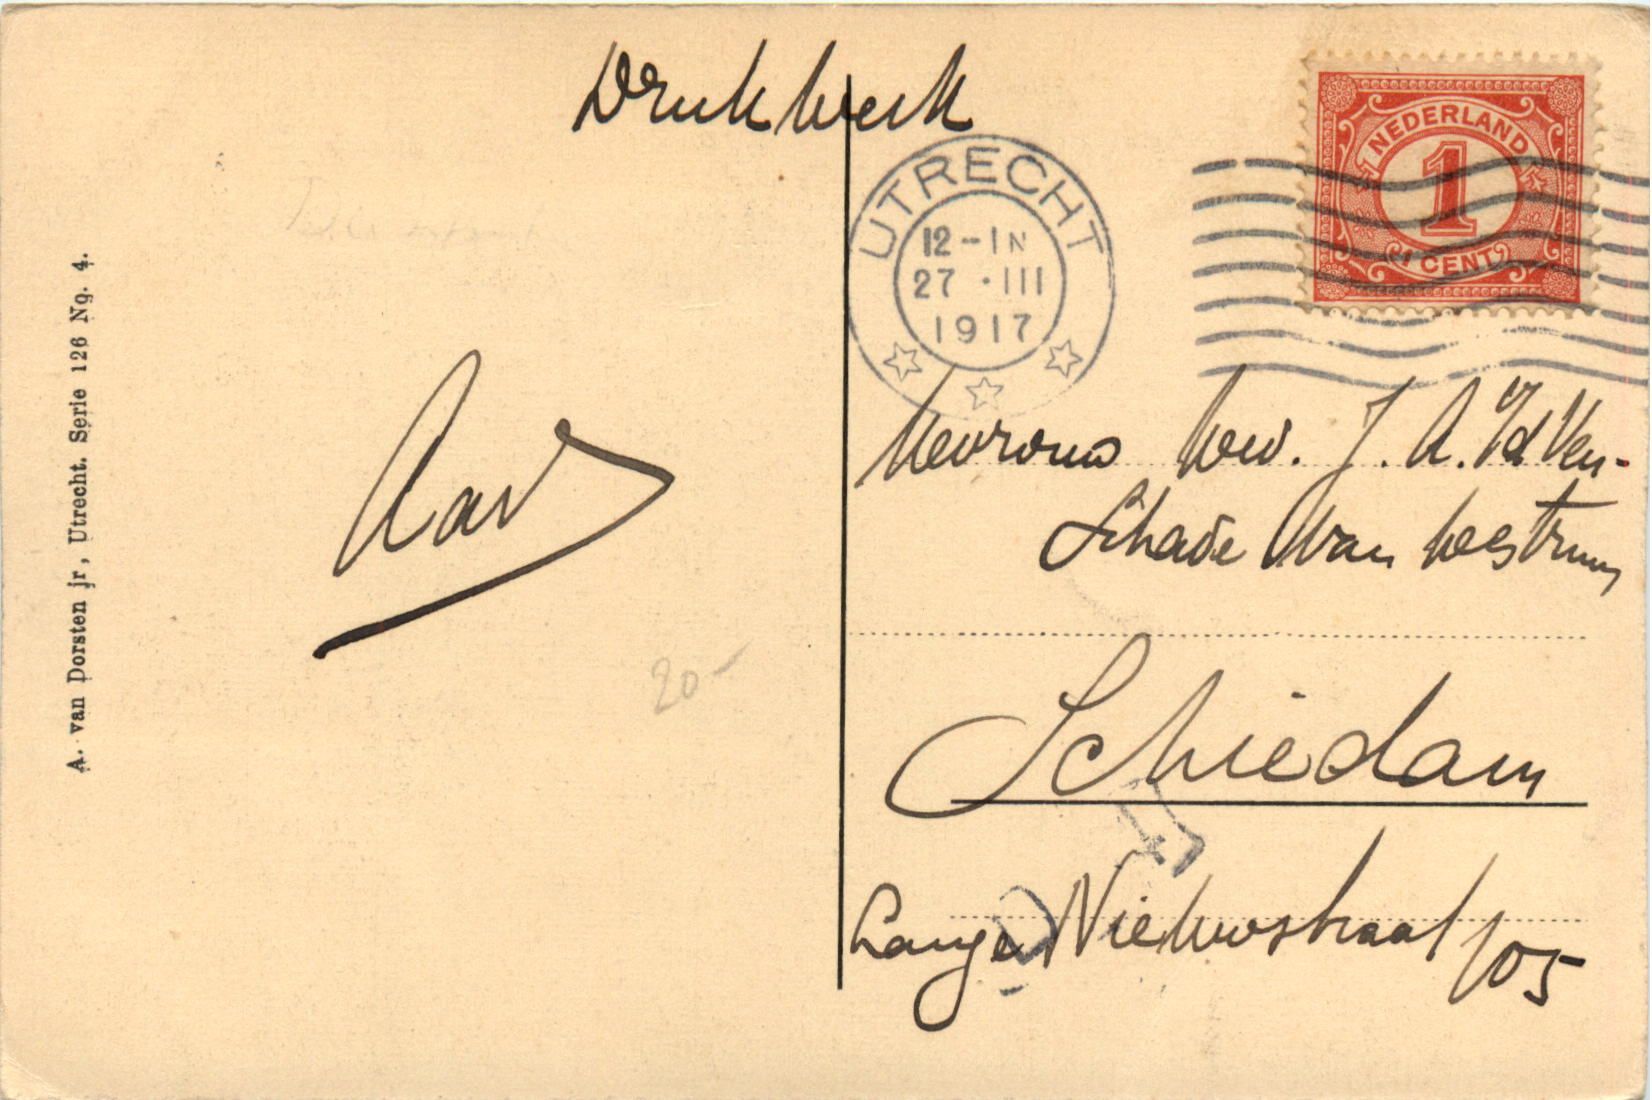 Drukwerk
NEDERLAND
1
1 CENT
UTRECHT
12-1N
27 ·III
1917
Mevrouw Wed. J. A. v/d Ven-
Schade van Westrum
Schiedam
Lange Nieuwstraat 105
A. van Dorsten jr, Utrecht. Serie 126 No. 4.
20-